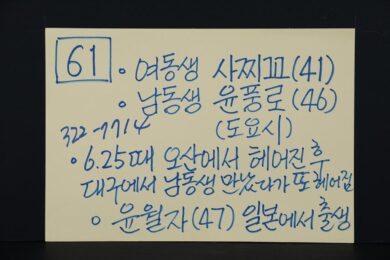 61
• 여동생 사찌꼬(41)
• 남동생 윤풍로(46)
322-7714 (도요시)
• 6.25때 오산에서 헤어진 후
대구에서 남동생 만났다가 또 헤어짐
• 윤월자(47) 일본에서 출생